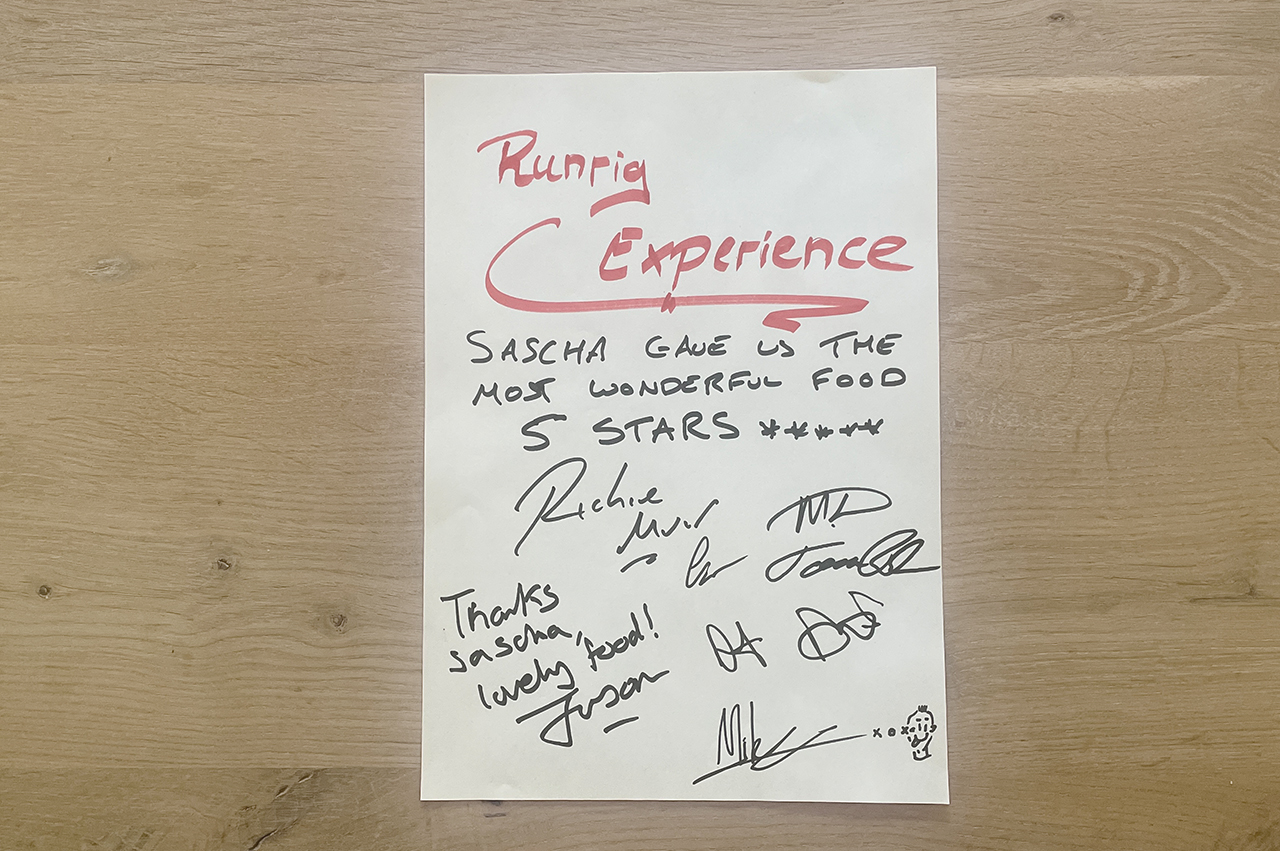 Runrig
Experience
SASCHA GAVE US THE
MOST WONDERFUL FOOD
5 STARS *****
Richie
Muir
Thanks
sascha,
lovely food!
Jason
xox